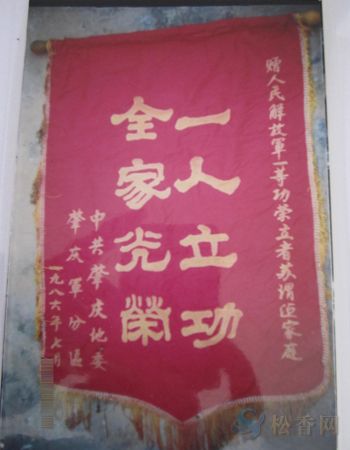 赠人民解放軍一等功荣立者苏渭恒家庭
一人立功
全家光榮
中共肇庆地委
肇庆军分區
一九八六年七月
松香网